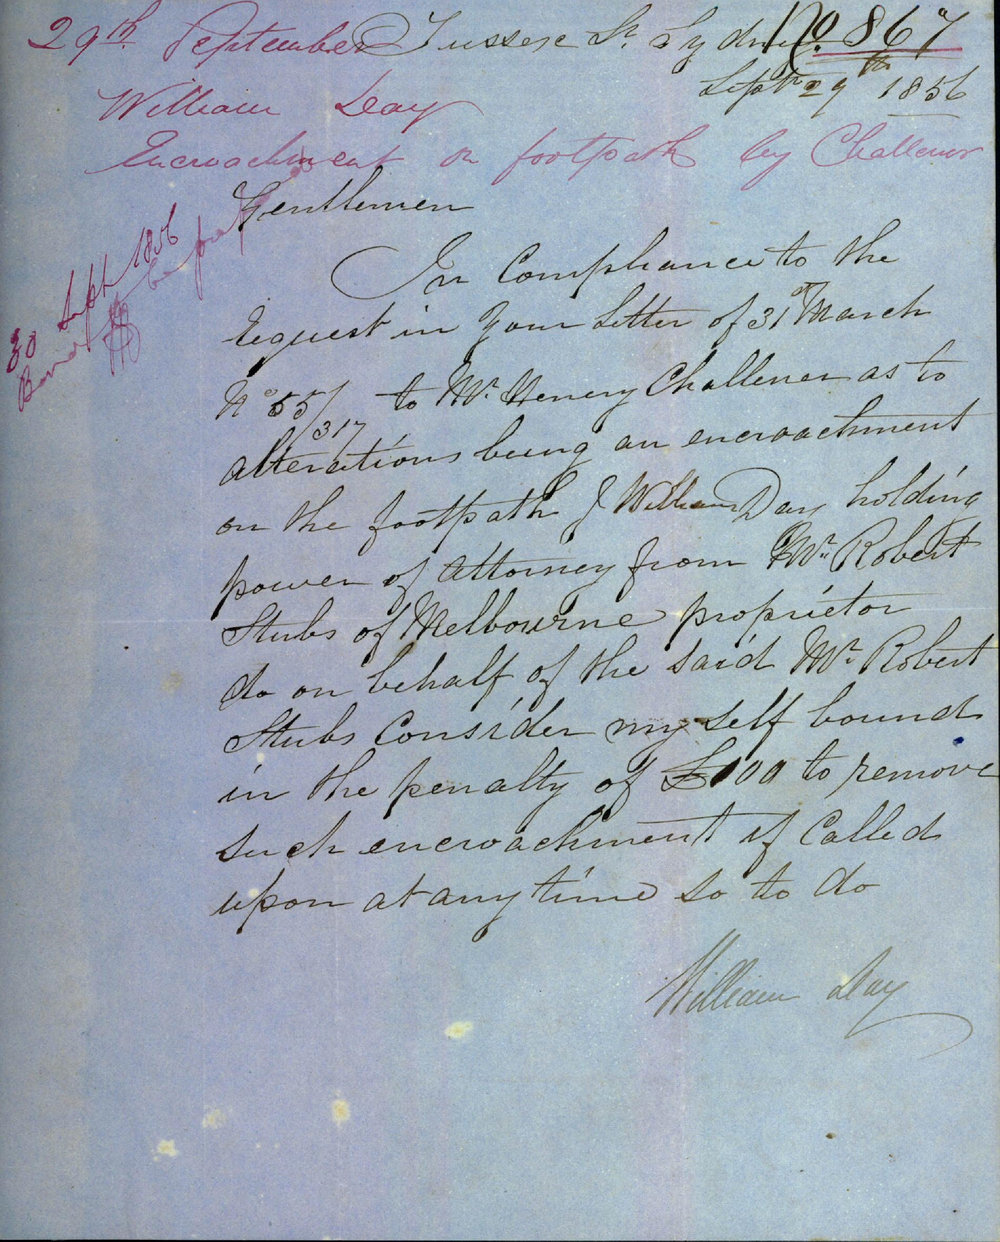 29th September
Sussex St Sydney
No. 867
Septr 29th 1856
William Day
Encroachment on footpath by Challener
30 Sept 1856
Gentlemen
In Compliance to the
request in your Letter of 31st March
No 55/317 to Mr. Henery Challener as to
alterations being an encroachment
on the footpath I William Day holding
power of attorney from Mr. Robert
Stubs of Melbourne propriétor
do on behalf of the said Mr. Robert
Stubs Consider my self bound
in the penalty of £100 to remove
such encroachment if Called
upon at any time so to do
William Day